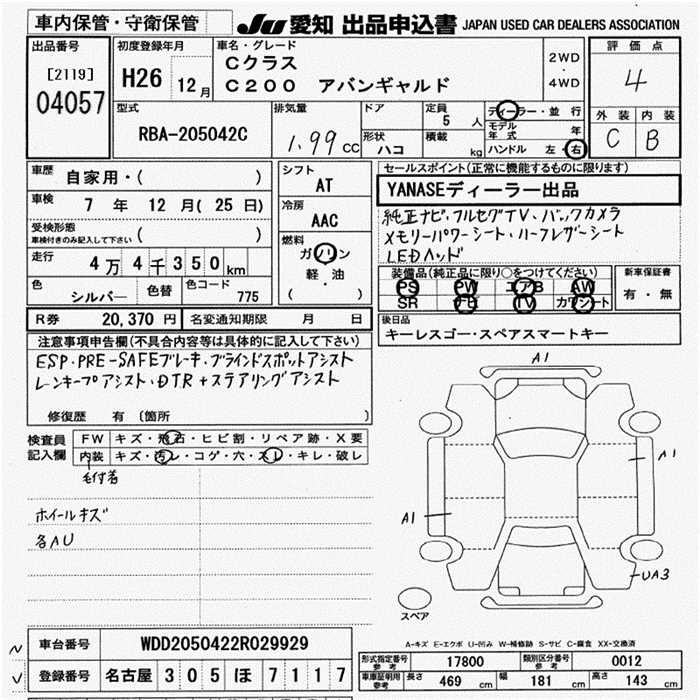 車内保管・守衛保管
JU 愛知 出品申込書 JAPAN USED CAR DEALERS ASSOCIATION
出品番号
[2119]
04057
初度登録年月
H26 12月
車名・グレード
Cクラス
C200 アバンギャルド
2WD
・
4WD
評価点
4
外装 内装
C B
型式
RBA-205042C
排気量
1.99 CC
ドア
形状 ハコ
定員 5 人
積載 kg
ディーラー・並行
モデル年式 年
ハンドル 左・右
車歴 自家用・( )
車検 7年 12月(25日)
受検形態 ( )
車検付きのみ記入して下さい
走行 4万4千350km
色 シルバー 色替 色コード 775
シフト
AT
冷房
AAC
燃料
ガソリン
軽・油
( )
セールスポイント(正常に機能するものに限ります)
YANASEディーラー出品
純正ナビ・フルセグTV、バックカメラ
メモリーパワーシート・ハーフレザーシート
LEDヘッド
装備品(純正品に限り○をつけてください)
PS PW エアB AW
SR ナビ TV カワシート
新車保証書
有・無
R券 20,370 円 名変通知期限 月 日
後日品
キーレスゴー・スペアスマートキー
注意事項申告欄(不具合内容等は具体的に記入して下さい)
ESP・PRE-SAFEブレーキ・ブラインドスポットアシスト
レーンキープアシスト・DTR+ステアリングアシスト
修復歴 有 〔箇所
検査員
記入欄
FW キズ・飛石・ヒビ割・リペア跡・X要
内装 キズ・汚レ・コゲ・穴・スレ・キレ・破レ
毛付着
ホイールキズ
各AU
A1
A1
A1
UA3
スペア
A-キズ E-エクボ U-凹み W-補修跡 S-サビ C-腐食 XX-交換済
車台番号 WDD2050422R029929
登録番号 名古屋 305 ほ 7117
形式指定番号 参考 17800 類別区分番号 参考 0012
車庫証明用 参考 長さ 469 cm 幅 181 cm 高さ 143 cm